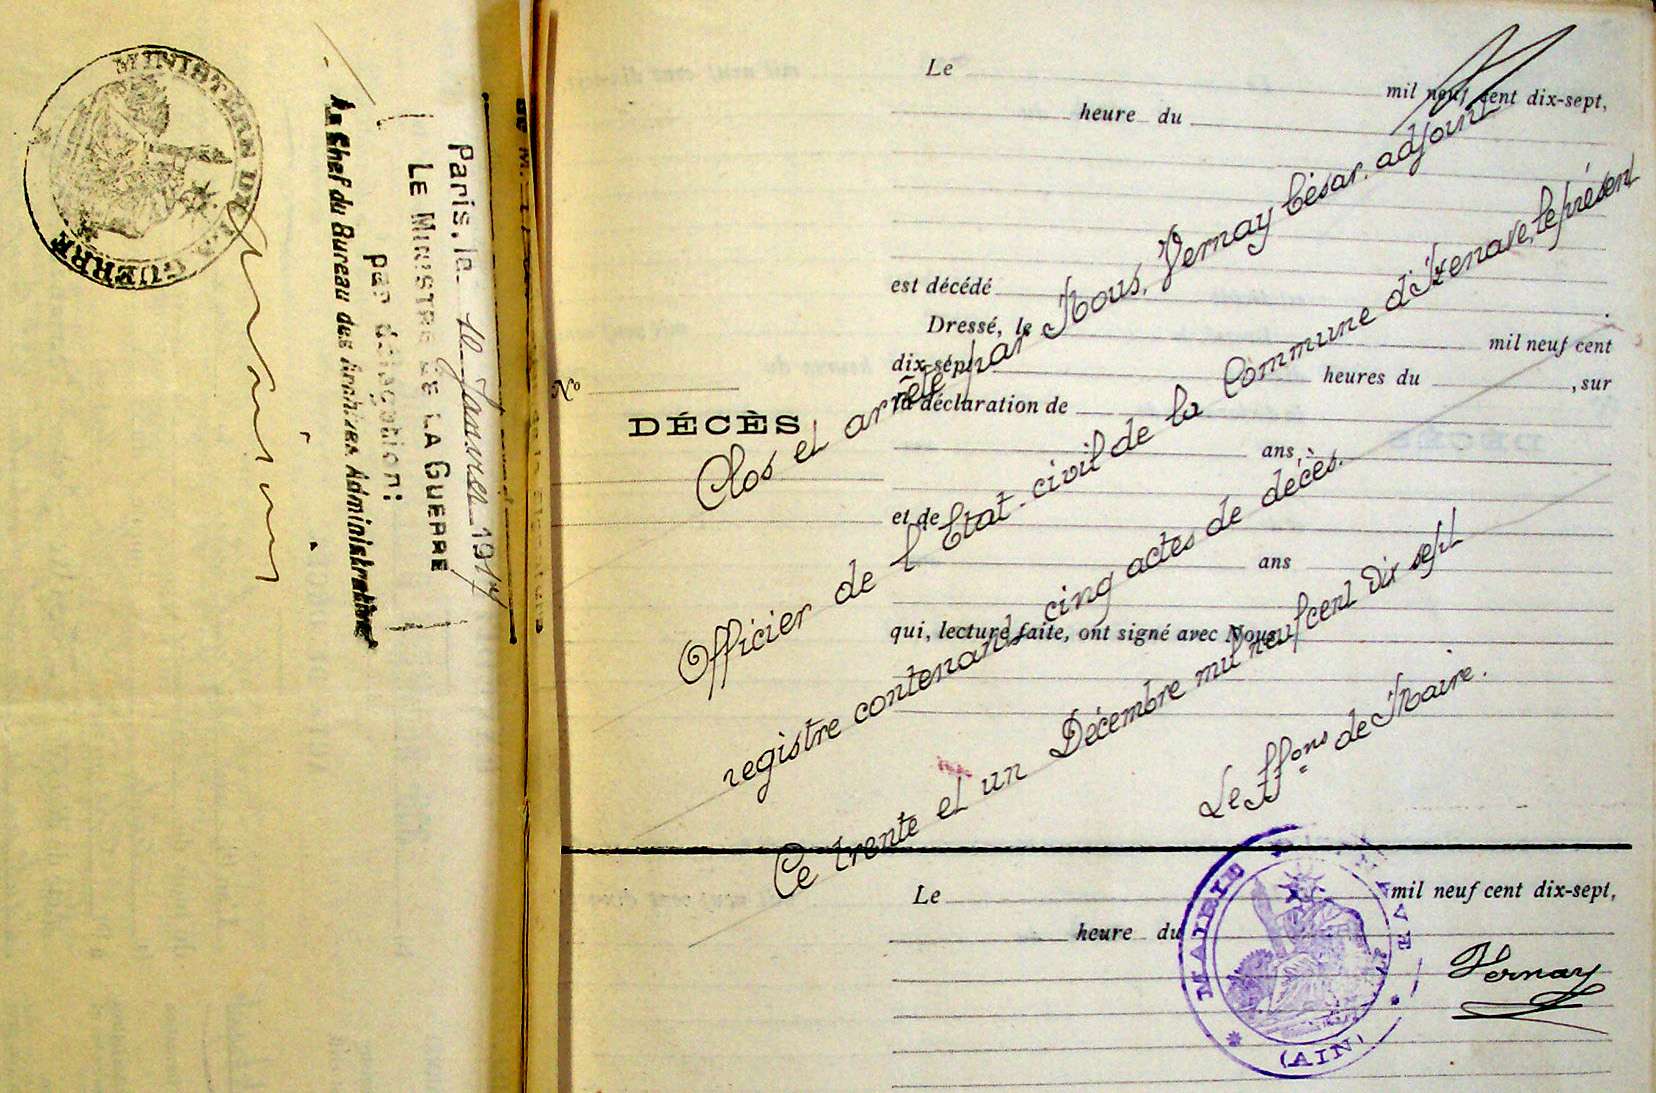 MINISTÈRE DE LA GUERRE
Paris, le 10 Janvier 1917
LE MINISTRE DE LA GUERRE
par délégation:
Le Chef du Bureau des Archives Administratives
Le mil neuf cent dix-sept,
heure du
est décédé
Dressé, le mil neuf cent
dix-sept heures du , sur
la déclaration de
Nº
DÉCÈS
ans,
et de
ans
qui, lecture faite, ont signé avec Nous
Clos et arrêté par Nous, Vernay César, adjoint
Officier de l'Etat-civil de la Commune d'Izenave, le présent
registre contenant cinq actes de décès.
Ce trente et un Décembre mil neuf cent dix sept
Le ffons de Maire.
Le mil neuf cent dix-sept,
heure du
MAIRIE
(AIN)
Vernay